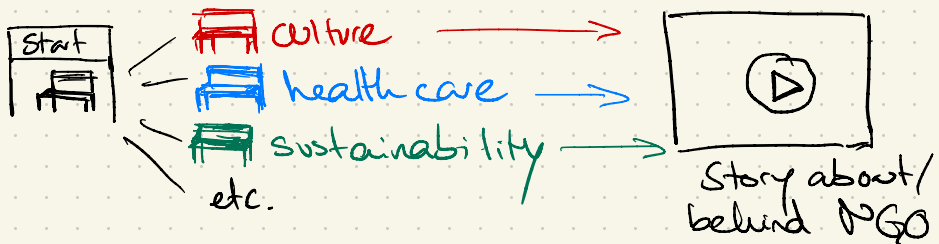 Start
culture
health care
sustainability
etc.
Story about/
behind NGO